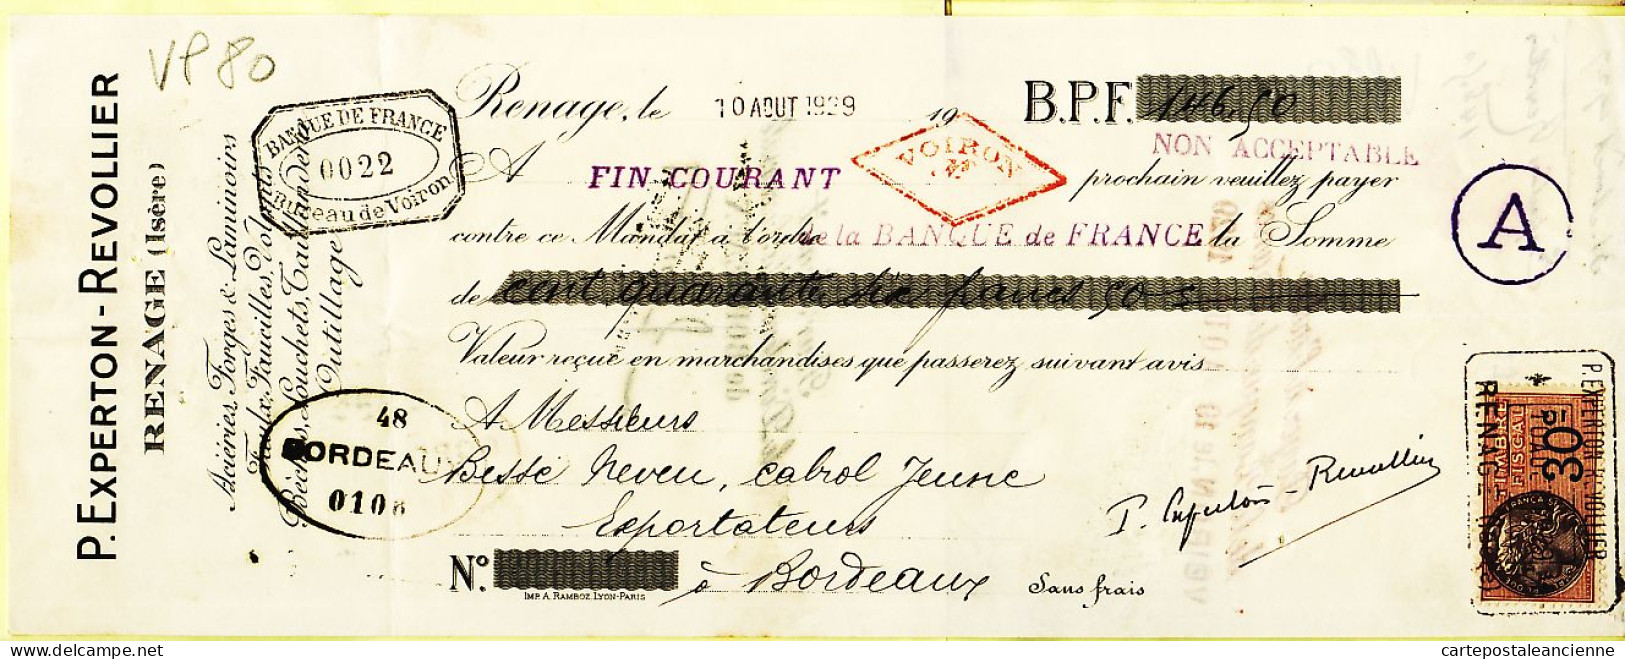 VP 80
P. EXPERTON - REVOLLIER
RENAGE (Isère)
Aciéries, Forges & Laminoirs
Faulx, Faucilles, Volants
Bêches, Louchets, Taillanderie
Outillage
BANQUE DE FRANCE
0022
Bureau de Voiron
Renage, le 10 AOUT 1929 19
B.P.F. 146,90
NON ACCEPTABLE
VOIRON
A FIN COURANT prochain veuillez payer
contre ce Mandat à l'ordre de la BANQUE de FRANCE la Somme
de cent quarante six francs 90
Valeur reçue en marchandises que passerez suivant avis
A Messieurs
Besse Neveu, Cabrol Jeune
Exportateurs
à Bordeaux
48
BORDEAUX
0108
P. Experton - Revollier
Nº.
Sans frais
IMP. A. RAMBOZ. LYON-PARIS
A
P. EXPERTON-REVOLLIER
RENAGE
TIMBRE
FISCAL
30c
cartepostaleancienne